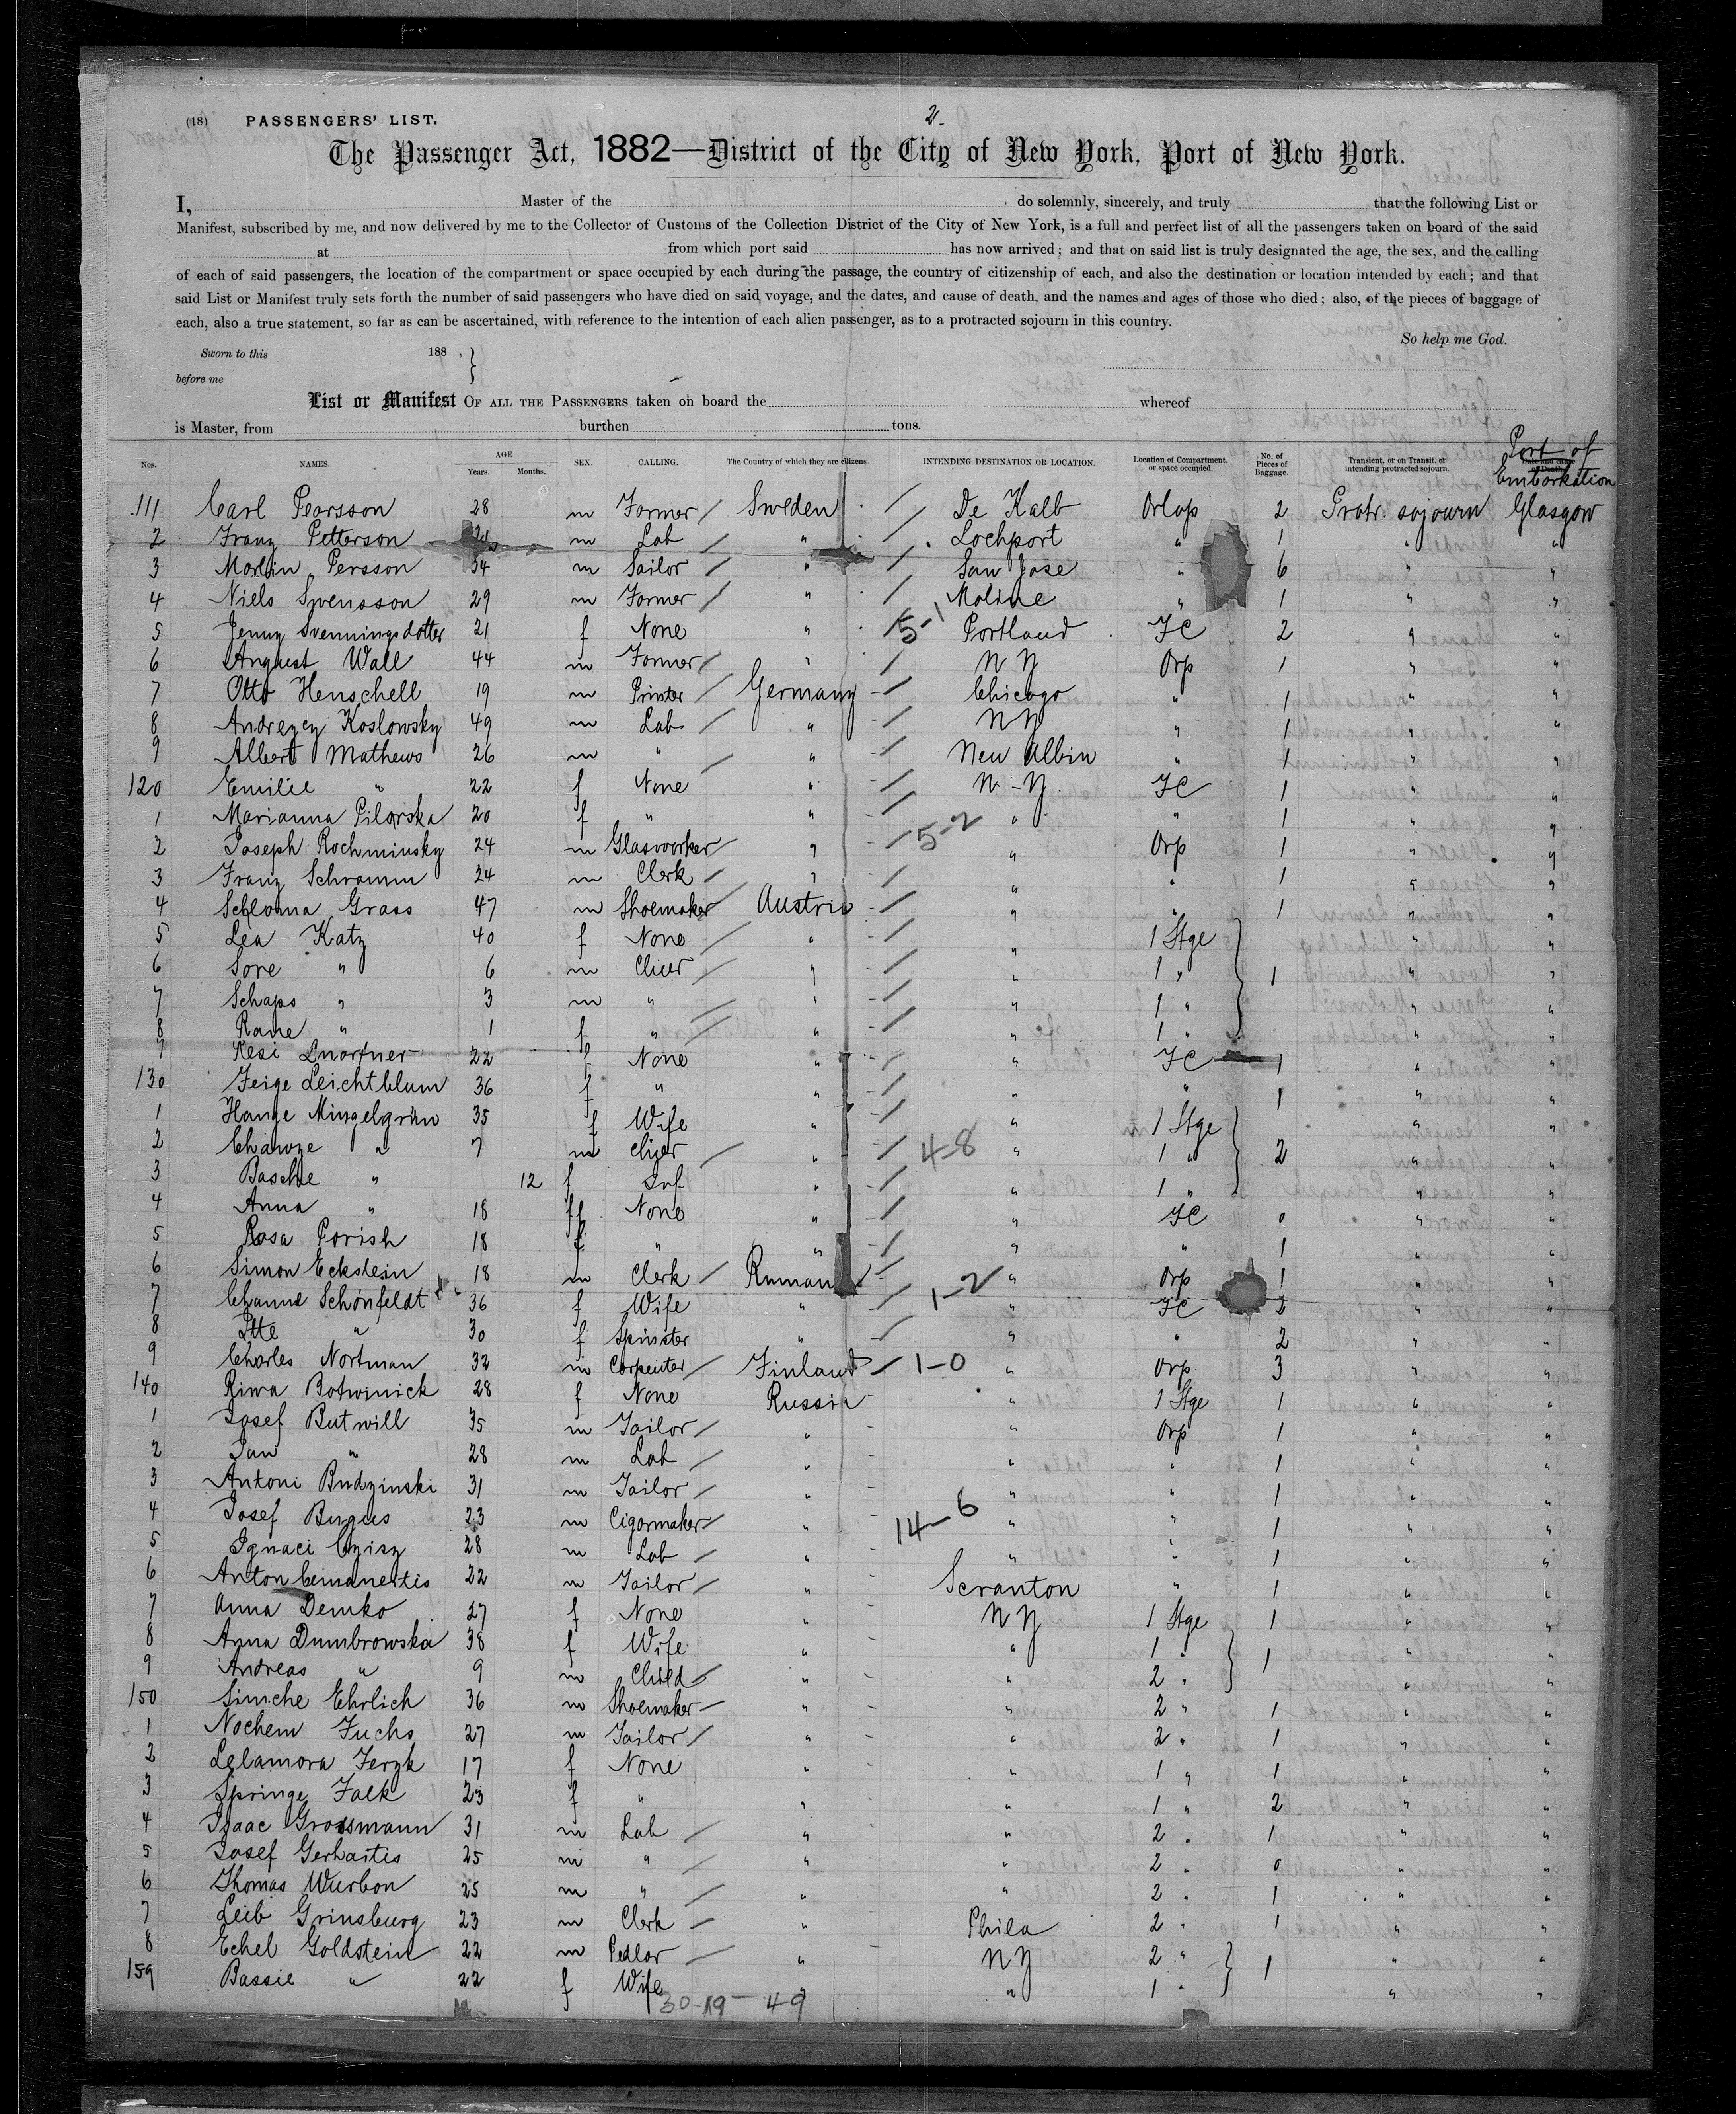 2.
(18) PASSENGERS' LIST.
The Passenger Act, 1882—District of the City of New York, Port of New York.
I, Master of the do solemnly, sincerely, and truly that the following List or
Manifest, subscribed by me, and now delivered by me to the Collector of Customs of the Collection District of the City of New York, is a full and perfect list of all the passengers taken on board of the said
at from which port said has now arrived; and that on said list is truly designated the age, the sex, and the calling
of each of said passengers, the location of the compartment or space occupied by each during the passage, the country of citizenship of each, and also the destination or location intended by each; and that
said List or Manifest truly sets forth the number of said passengers who have died on said voyage, and the dates, and cause of death, and the names and ages of those who died; also, of the pieces of baggage of
each, also a true statement, so far as can be ascertained, with reference to the intention of each alien passenger, as to a protracted sojourn in this country.
So help me God.
Sworn to this 188 , }
before me
List or Manifest OF ALL THE PASSENGERS taken on board the whereof
is Master, from burthen tons.
Nos. NAMES. AGE Years. Months. SEX. CALLING. The Country of which they are citizens. INTENDING DESTINATION OR LOCATION. Location of Compartment, or space occupied. No. of Pieces of Baggage. Transient, or on Transit, or intending protracted sojourn. Port of Embarkation
111 Carl Pearsson 28 m Farmer / Sweden / De Kalb Orlop 2 Protr. sojourn Glasgow
2 Franz Petterson m Lab / " / Lochport " 1 " "
3 Martin Persson 34 m Sailor / " / San Jose " 6 " "
4 Niels Svensson 29 m Farmer / " / Moline " 1 " "
5 Jenny Svenningsdotter 21 f None " / 5-1 Portland FC 2 " "
6 August Wall 44 m Farmer / " / N Y Orp 1 " "
7 Otto Henschell 19 m Printer / Germany / Chicago " 1 " "
8 Andrezey Koslowsky 49 m Lab / " / N Y " 1 " "
9 Albert Mathews 26 m " / " / New Albin " 1 " "
120 Emilie " 22 f None " / N-Y. FC 1 " "
1 Marianna Pilarska 20 f " " / " " 1 " "
2 Joseph Rochminsky 24 m Glasworker / " / 5-2 " Orp 1 " "
3 Franz Schramm 24 m Clerk / " / " " 1 " "
4 Schloma Grass 47 m Shoemaker / Austria / " " 1 " "
5 Lea Katz 40 f None / " / " 1 Stge } " "
6 Sore " 6 m Chier / " / " 1 " 1 " "
7 Schaps " 3 m " / " / " 1 " " "
8 Rane " 1 f " / " / " 1 " " "
9 Resi 22 f None " / " FC 1 " "
130 Feige Leichtblum 36 f " " / " " 1 " "
1 Hange Mingelgrün 35 f Wife " / " 1 Stge } " "
2 Chawze " 7 m Chier / " / 4-8 " 1 " 2 " "
3 Basche " 12 f Inf " / " 1 " " "
4 Anna " 18 f None " / " FC 0 " "
5 Rosa Porish 18 f " " / " " 1 " "
6 Simon Eckstein 18 m Clerk / Ruman / " Orp 1 " "
7 Channe Schönfeldt 36 f Wife " / 1-2 " FC 2 " "
8 Itte " 30 f Spinster " / " " 2 " "
9 Charles Nortman 32 m Carpenter / Finland / 1-0 " Orp 3 " "
140 Riwa Botwinick 28 f None Russia " 1 Stge 1 " "
1 Josef Butwill 35 m Tailor / " " Orp 1 " "
2 Jan " 28 m Lab / " " " 1 " "
3 Antoni Budzinski 31 m Tailor / " " " 1 " "
4 Josef Bugus 23 m Cigarmaker / " 14-6 " " 1 " "
5 Ignaci Czisz 28 m Lab / " " " 1 " "
6 Anton Cemanertis 22 m Tailor / " Scranton " 1 " "
7 Anna Demko 27 f None " N Y 1 Stge 1 " "
8 Anna Dumbrowska 38 f Wife " " 1 " } 1 " "
9 Andreas " 9 m Child / " " 2 " " "
150 Simche Ehrlich 36 m Shoemaker / " " 2 " 1 " "
1 Nochem Fuchs 27 m Tailor / " " 2 " 1 " "
2 Lelamora Ferzk 17 f None " " 1 " 1 " "
3 Springe Falk 23 f " " " 1 " 2 " "
4 Isaac Grossmann 31 m Lab / " " 2 " 1 " "
5 Josef Gerhartis 25 m " / " " 2 " 0 " "
6 Thomas Wurbon 25 m " / " " 2 " 1 " "
7 Leib Grinsburg 23 m Clerk / " Phila 2 " 1 " "
8 Echel Goldstein 22 m Pedlar / " N Y 2 " } 1 " "
159 Bassie " 22 f Wife " " 1 " " "
30-19-49